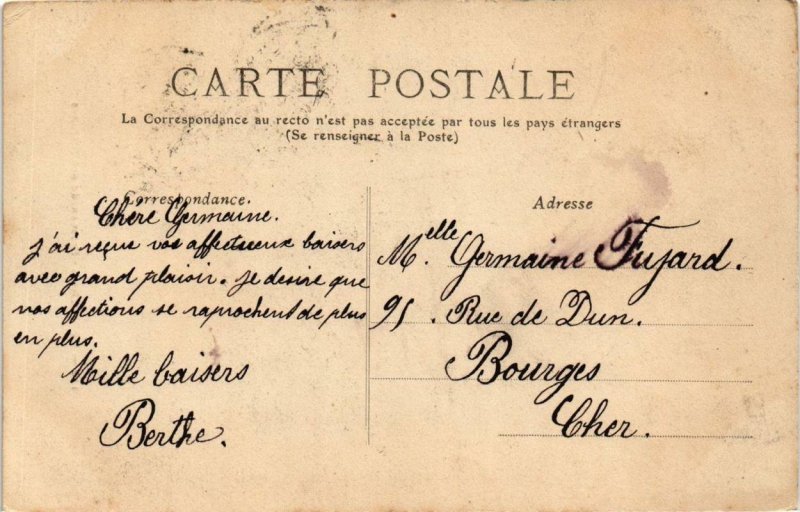 CARTE POSTALE
La Correspondance au recto n'est pas acceptée par tous les pays étrangers
(Se renseigner à la Poste)
Correspondance.
Chère Germaine.
j'ai reçue vos affectueux baisers
avec grand plaisir. je desire que
nos affections se raprochent de plus
en plus.
Mille baisers
Berthe.
Adresse
M.elle Germaine Fujard.
91. Rue de Dun.
Bourges
Cher.